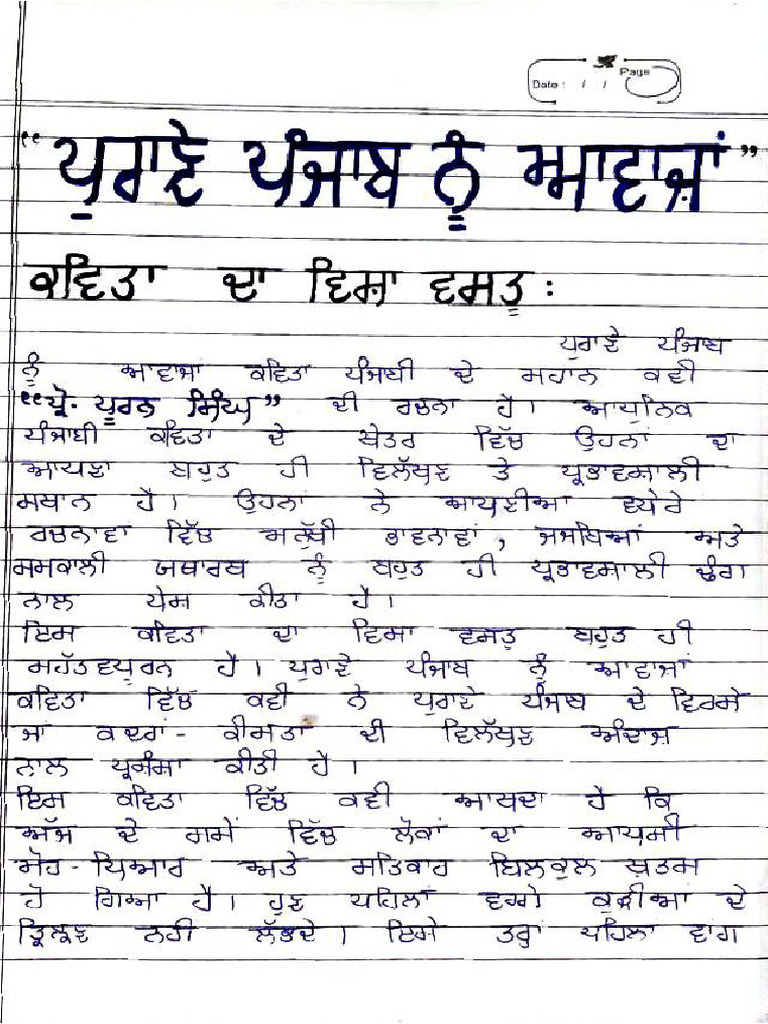 Date : / / Page
“ਪੁਰਾਣੇ ਪੰਜਾਬ ਨੂੰ ਅਾਵਾਜ਼ਾਂ”
ਕਵਿਤਾ ਦਾ ਵਿਸ਼ਾ ਵਸਤੂ :
ਪੁਰਾਣੇ ਪੰਜਾਬ
ਨੂੰ ਆਵਾਜ਼ਾਂ ਕਵਿਤਾ ਪੰਜਾਬੀ ਦੇ ਮਹਾਨ ਕਵੀ
“ਪ੍ਰੋ. ਪੂਰਨ ਸਿੰਘ” ਦੀ ਰਚਨਾ ਹੈ। ਆਧੁਨਿਕ
ਪੰਜਾਬੀ ਕਵਿਤਾ ਦੇ ਖੇਤਰ ਵਿੱਚ ਉਹਨਾਂ ਦਾ
ਆਪਣਾ ਬਹੁਤ ਹੀ ਵਿਲੱਖਣ ਤੇ ਪ੍ਰਭਾਵਸ਼ਾਲੀ
ਸਥਾਨ ਹੈ। ਉਹਨਾਂ ਨੇ ਆਪਣੀਆ ਵਧੇਰੇ
ਰਚਨਾਵਾ ਵਿੱਚ ਮਨੁੱਖੀ ਭਾਵਨਾਵਾਂ, ਜਜਬਿਆਂ ਅਤੇ
ਸਮਕਾਲੀ ਯਥਾਰਥ ਨੂੰ ਬਹੁਤ ਹੀ ਪ੍ਰਭਾਵਸ਼ਾਲੀ ਢੰਗ
ਨਾਲ ਪੇਸ਼ ਕੀਤਾ ਹੈ।
ਇਸ ਕਵਿਤਾ ਦਾ ਵਿਸਾ ਵਸਤੂ ਬਹੁਤ ਹੀ
ਮਹੱਤਵਪੂਰਨ ਹੈ। ਪੁਰਾਣੇ ਪੰਜਾਬ ਨੂੰ ਆਵਾਜਾਂ
ਕਵਿਤਾ ਵਿੱਚ ਕਵੀ ਨੇ ਪੁਰਾਣੇ ਪੰਜਾਬ ਦੇ ਵਿਰਸੇ
ਜਾਂ ਕਦਰਾਂ - ਕੀਮਤਾਂ ਦੀ ਵਿਲੱਖਣ ਅੰਦਾਜ਼
ਨਾਲ ਪ੍ਰਸੰਸਾ ਕੀਤੀ ਹੈ।
ਇਸ ਕਵਿਤਾ ਵਿੱਚ ਕਵੀ ਆਖਦਾ ਹੈ ਕਿ
ਅੱਜ ਦੇ ਸਮੇਂ ਵਿੱਚ ਲੋਕਾਂ ਦਾ ਆਪਸੀ
ਮੋਹ - ਪਿਆਰ ਅਤੇ ਸਤਿਕਾਰ ਬਿਲਕੁਲ ਖ਼ਤਮ
ਹੋ ਗਿਆ ਹੈ। ਹੁਣ ਪਹਿਲਾਂ ਵਰਗੇ ਕੁੜੀਆਂ ਦੇ
ਤ੍ਰਿੰਝਣ ਨਹੀ ਲੱਭਦੇ। ਇਸੇ ਤਰ੍ਹਾਂ ਪਹਿਲਾ ਵਾਂਗ